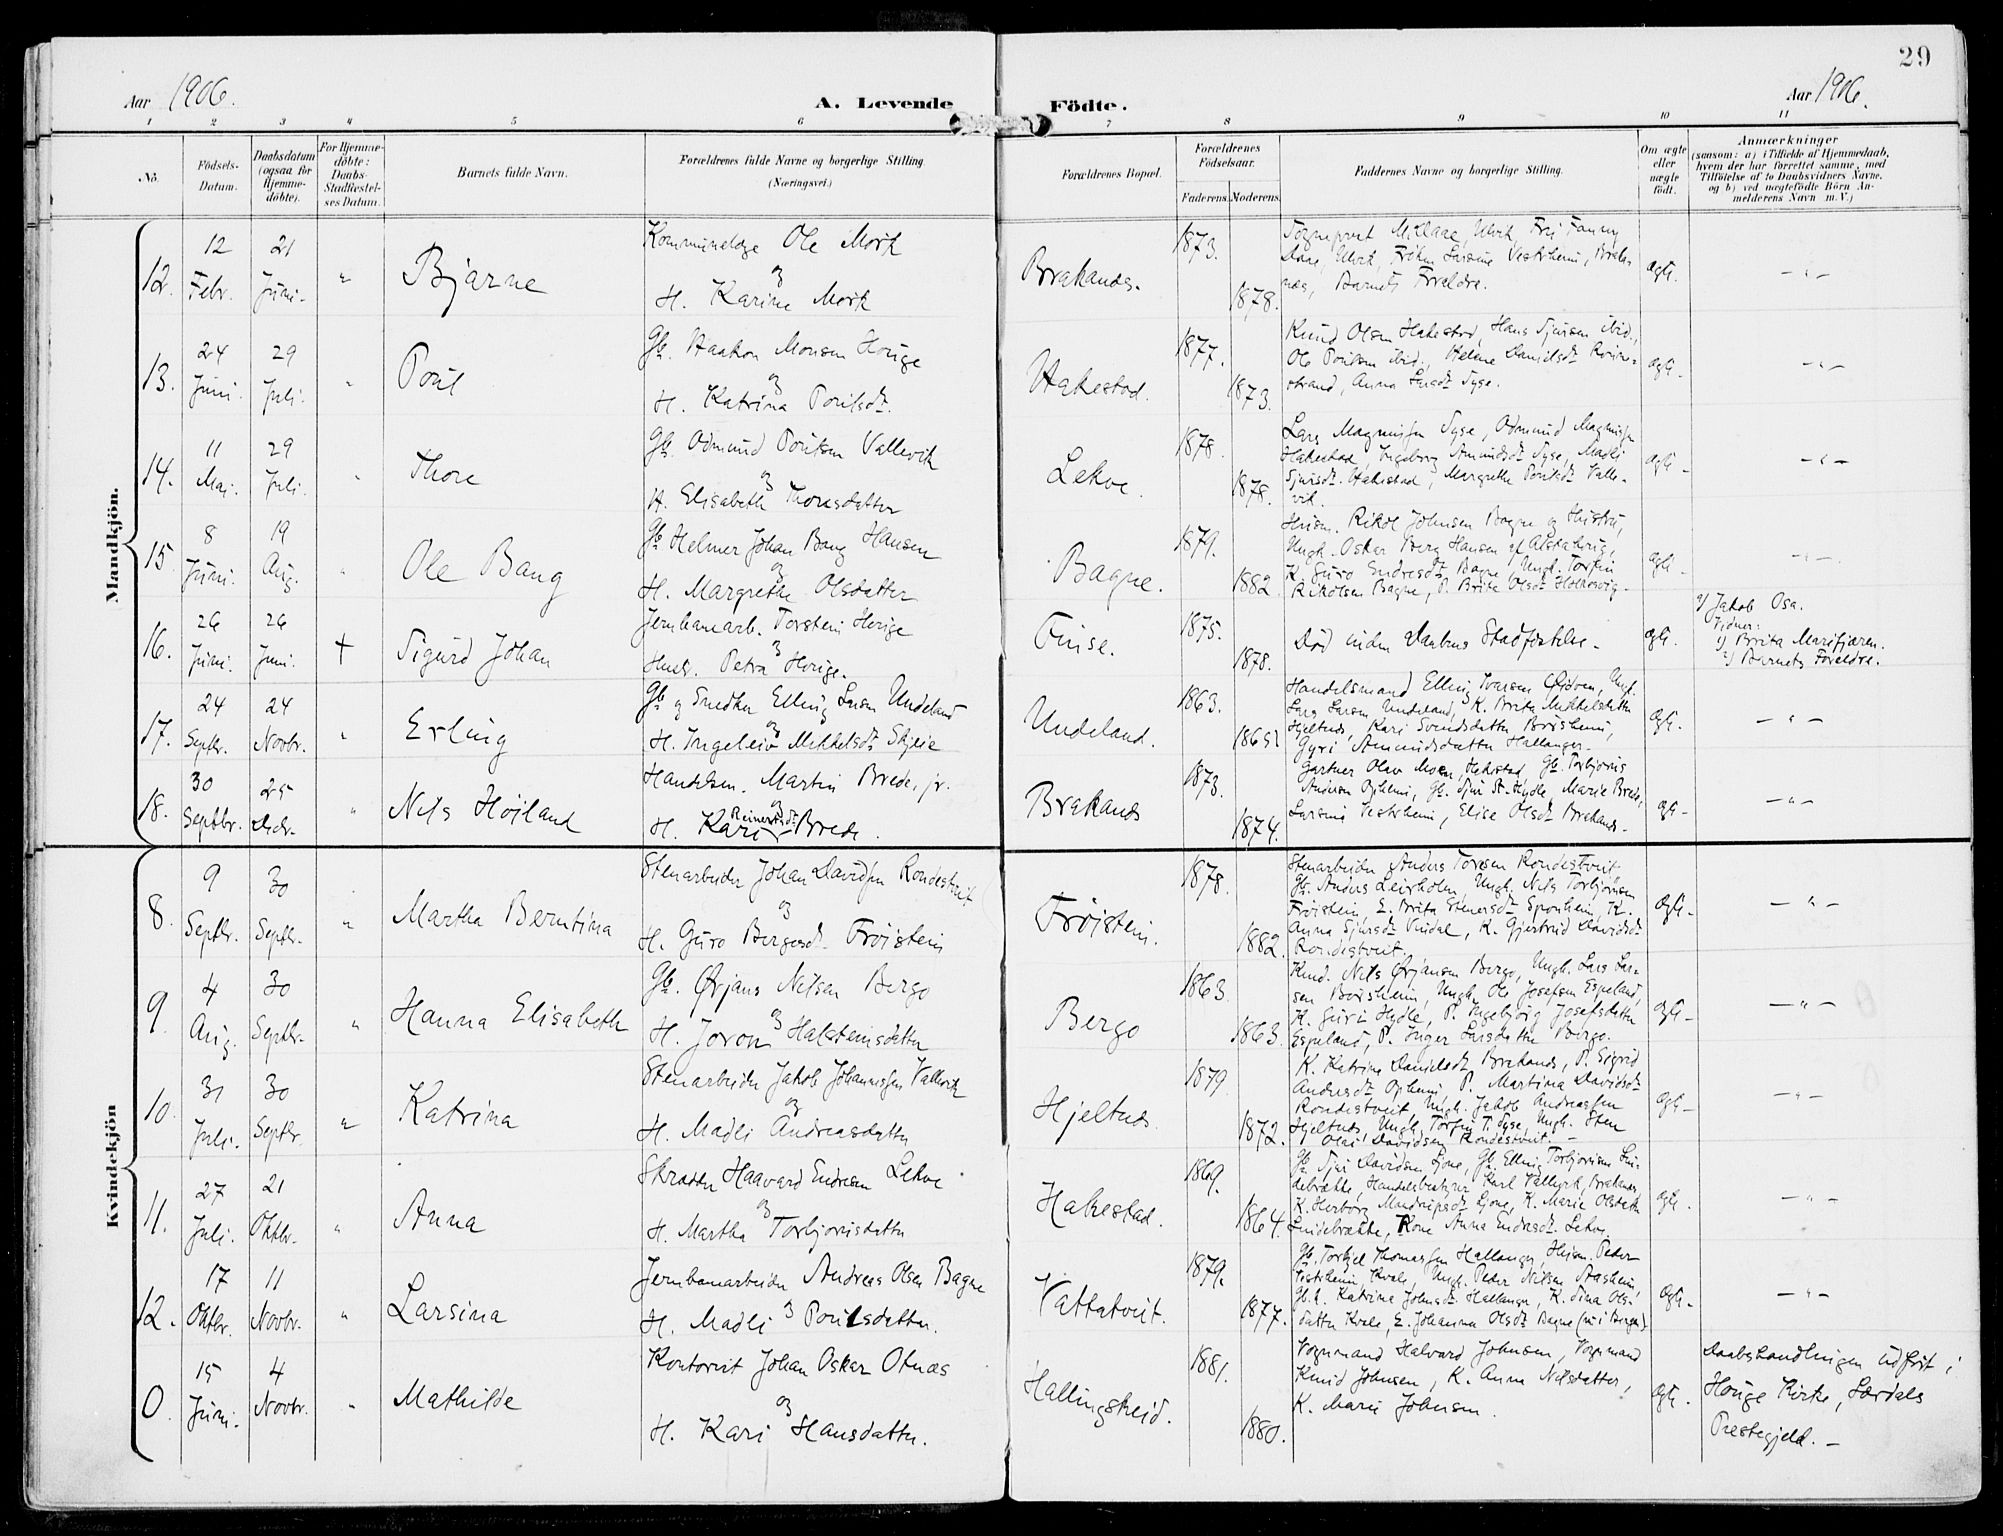 29
Aar 1906.
A. Levende Födte.
Aar 1906.
1 2 3 4 5 6 7 8 9 10 11
No.
Födsels-Datum.
Daabsdatum (ogsaa for Hjemmedöbte).
For Hjemmedöbte: Daabs-Stadfæstelses Datum.
Barnets fulde Navn.
Forældrenes fulde Navne og borgerlige Stilling (Næringsvei.)
Forældrenes Bopæl.
Forældrenes Födselsaar.
Faderens. Moderens.
Faddernes Navne og borgerlige Stilling.
Om ægte eller uægte födt.
Anmærkninger
(saasom: a) i Tilfælde af Hjemmedaab,
hvem der har forrettet samme, med
Tilföielse af to Daabsvidners Navne.
og b) ved uægtefödte Börn Anmelderens Navn m. V.)
Mandkjön.
12. 12 Febr. 21 Juni. " Bjarne
Ole Mork
og
H. Karine Mork
Brakanes. 1873. 1878.
Barnets Forældre.
ægte. — " —
13. 24 Juni. 29 Juli. " Poul
Gb. Haakon Monsen Houge
og
H. Katrina Poulsdt.
Hakestad. 1877. 1873.
Knud Olsen Hakestad, Hans Sjursen ibid.,
Ole Poulsen ibid., Helene Danielsdt.
strand, Anna Larsdt. Syse.
ægte. — " —
14. 11 Mai. 29 Juli. " Thore
Gb. Odmund Poulsen Vallevik
og
H. Elisabeth Thoresdatter
Lekve. 1878. 1878.
Lars Magnussen Syse, Odmund Magnussen
Hakestad, Ingeborg Amundsdt. Syse, Madli
Sjursdt. Hakestad, Margrethe Poulsdt. Vallevik.
ægte — " —
15. 8 Juni. 19 Aug. " Ole Bang
Gb. Helmer Johan Bang Hansen
og
H. Margrethe Olsdatter
Bagne. 1879. 1882.
Husm. Rikol Johnsen Bagne og Hustru,
Ungk. Oskar Berg Hansen
K. Guro Endresdt. Bagne, Ungk. Torfin
Rikolsen Bagne, P. Brita Olsdt.
ægte — " —
16. 26 Juni. 26 Juni. † Sigurd Johan
Jernbanearb. Torstein Houge
og
Hust. Petra Houge.
Finse. 1875. 1878.
Död inden Daabens Stadfæstelse.
ægte.
a/ Jakob Osa.
Vidner:
1) Brita Marifjæren.
2) Barnets Forældre.
17. 24 Septbr. 24 Novbr. " Erling
Gb. og Snedker Elling Larsen Undeland
og
H. Ingeleiv Mikkelsdt. Skjeie
Undeland. 1863. 1865
Handelsmand Elling Iversen Øydven, Ungk.
Lars Larsen Undeland, K. Brita Mikkelsdatter
Hjeltnes, Kari Svendsdatter Borsheim,
Gyri Amundsdatter Hallanger.
ægte. — " —
18. 30 Septbr. 25 Decbr. " Nils Höiland
Handelsm. Martin Brede, jr.
og
H. Kari Reinertsdt. Brede.
Brakanes 1873. 1874.
Gartner Olav Moen, Hakestad, Gb. Torbjörn
Andersen Opheim, Gb. Sjur St. Hylle, Marie Brede,
Larsine Vestrheim, Elise Olsdt. Brakanes.
ægte — " —
Kvindekjön
8. 9 Septbr. 30 Septbr. " Martha Berntina
Stenarbeider Johan Davidsen Rondestveit
og
H. Guro Bergesdt. Fröistein
Fröistein. 1878. 1882.
Stenarbeider Anders Toresen Rondestveit,
Gb. Anders Leirholm, Ungk. Nils Torbjörnsen
Fröistein, E. Brita Steinersdt. Sponheim, K.
Anna Sjursdt. Vindal, K. Gjertrud Davidsdt.
Rondestveit.
ægte — " —
9. 4 Aug. 30 Septbr. " Hanna Elisabeth
Gb. Ørjans Nilsen Bergo
og
H. Joron Halsteinsdatter
Bergo 1863. 1863.
Knud Nils Ørjansen Bergo, Ungk. Lars Larsen
Borsheim, Ungk. Ole Josefsen Espeland,
K. Guri Hylle, P. Ingebjörg Josefsdatter
Espeland, P. Inger Larsdatter Bergo.
ægte — " —
10. 31 Juli. 30 Septbr. " Katrina
Stenarbeider Jakob Johannessen Vallevik
og
H. Madli Andreasdatter
Hjeltnes. 1879 1872.
K. Katrina Danielsdt. Brakanes, P. Sigrid
Andersdt. Opheim, P. Martina Davidsdt.
Rondestveit, Ungk. Jakob Andreassen
Hjeltnes, Ungk. Torfin T. Syse, Ungk. Sten
Olai Davidsen Rondestveit.
ægte — " —
11. 27 Juli. 21 Oktbr. " Anna
Skrædder Haavard Endresen Lekve
og
H. Martha Torbjörnsdatter
Hakestad. 1869. 1864.
Gb. Sjur Davidsen Ljone, Gb. Elling Torbjörnsen Lindebrække,
Handelsbestyrer Karl Vallevik, Brakanes,
K. Herborg Ljone, K. Marie Olsdatter
Lindebrække, Kone Anna Endresdt. Lekve.
ægte. — " —
12. 17 Oktbr. 11 Novbr. " Larsina
Jernbanearbeider Andreas Olsen Bagne
og
H. Madli Poulsdatter.
Vattatveit. 1879. 1877.
Gb. Torkjel Thomassen Hallanger, Husm. Peder
Vestrheim, Kvale, Ungk. Peder Nilsen Aasheim,
Katrina Johnsdt. Hallanger, K. Sina Olsdatter
Kvale, E. Johanna Olsdt. Bagne (nu i Bergen).
ægte. — " —
0. 15 Juni. 4 Novbr. " Mathilde
Kontorist Johan Oskar Otnæs
og
H. Kari Hansdatter.
Hallingskeid. 1881. 1880.
Vognmand Halvard Johnsen, Vognmand
Knud Johnsen, K. Anna Nilsdatter,
K. Marie Johnsen.
ægte.
Daabshandlingen udfört i
Houge Kirke, Lærdals
Prestegjeld. —